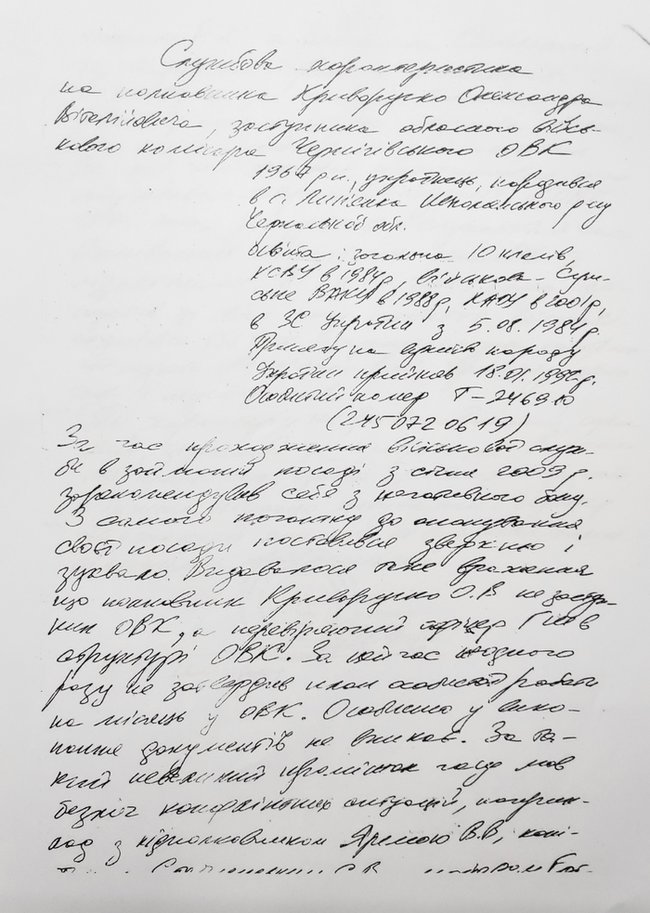 Службова характеристика
на полковника Криворучко Олександра
Віталійовича, заступника обласного війсь-
кового комісара Чернігівського ОВК
1967 р.н., українець, народився
в с. Липівка р-ну
обл.
Освіта: загальна 10 класів,
в 1984р, військова - Сум-
ське ВАКУ в 1988р, НАОУ в 2001р,
в ЗС України з 5.08.1984р.
Присягу на вірність народу
України прийняв 18.01.1992р.
Особистий номер Г-246910
(2450720619)
За час проходження військової служ-
би в займаній посаді з січня 2009р.
зарекомендував себе з негативного боку.
З самого початку до виконування
своєї посади поставився зверхньо і
зухвало. Видавалося таке враження
що полковник Криворучко О.В не заступ-
ник ОВК, а перевіряючий офіцер ГШ в
структурі ОВК. За цей час жодного
разу не затвердив план особистої роботи
на місяць у ОВК. Особисто у вико-
нання документів не вникає. За та-
кий невеликий проміжок часу мав
безліч конфліктних ситуацій, наприк-
лад з підполковником Яремою В.В,